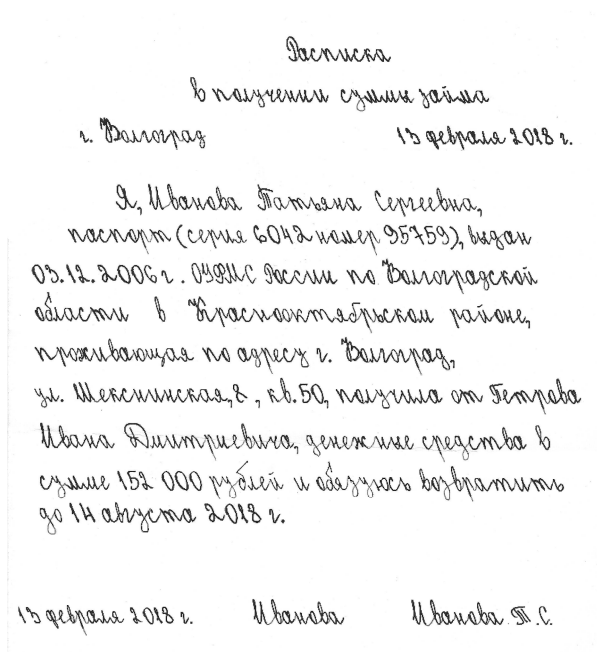 Расписка
в получении суммы займа
г. Волгоград 13 февраля 2018 г.
Я, Иванова Татьяна Сергеевна,
паспорт (серия 6042 номер 95759), выдан
03.12.2006 г. ОУФМС России по Волгоградской
области в Краснооктябрьском районе,
проживающая по адресу г. Волгоград,
ул. Шекснинская, 8, кв. 50, получила от Петрова
Ивана Дмитриевича, денежные средства в
сумме 152 000 рублей и обязуюсь возвратить
до 14 августа 2018 г.
13 февраля 2018 г. Иванова Иванова Т.С.